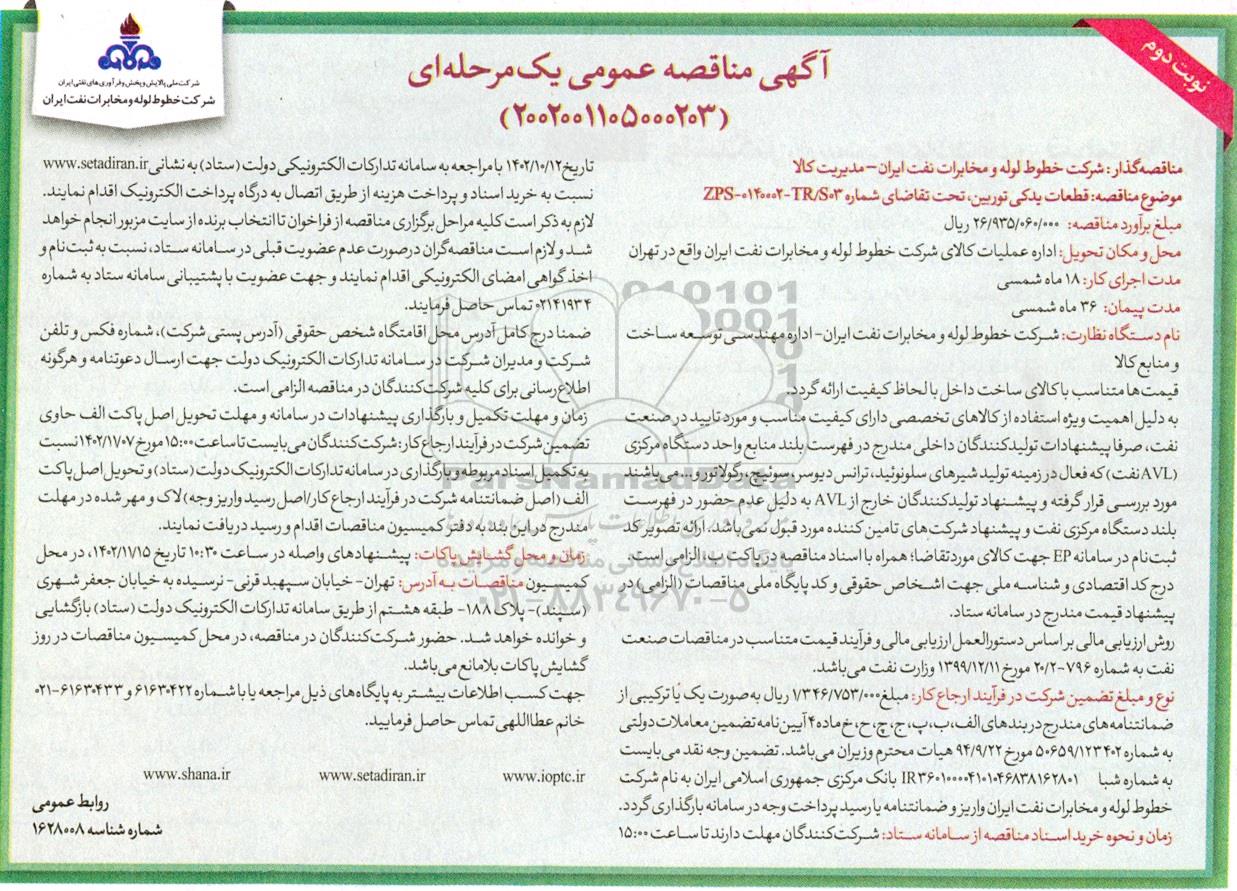 نوبت دوم
شرکت ملی پالایش و پخش و فرآورده‌های نفتی ایران
شرکت خطوط لوله و مخابرات نفت ایران
آگهی مناقصه عمومی یک مرحله‌ای
(۲۰۰۲۰۰۱۱۰۵۰۰۰۲۰۳)
مناقصه‌گذار: شرکت خطوط لوله و مخابرات نفت ایران – مدیریت کالا
موضوع مناقصه: قطعات یدکی توربین، تحت تقاضای شماره ZPS-۰۱۴۰۰۰۲-TR/S۰۳
مبلغ برآورد مناقصه: ۲۶/۹۳۵/۰۶۰/۰۰۰ ریال
محل و مکان تحویل: اداره عملیات کالای شرکت خطوط لوله و مخابرات نفت ایران واقع در تهران
مدت اجرای کار: ۱۸ ماه شمسی
مدت پیمان: ۳۶ ماه شمسی
نام دستگاه نظارت: شرکت خطوط لوله و مخابرات نفت ایران- اداره مهندسی توسعه ساخت
و منابع کالا
قیمت‌ها متناسب با کالای ساخت داخل با لحاظ کیفیت ارائه گردد.
به دلیل اهمیت ویژه استفاده از کالاهای تخصصی دارای کیفیت مناسب و مورد تایید در صنعت
نفت، صرفا پیشنهادات تولیدکنندگان داخلی مندرج در فهرست بلند منابع واحد دستگاه مرکزی
(AVL نفت) که فعال در زمینه تولید شیرهای سلونوئید، ترانس دیوسر، سوئیچ، رگولاتور و.. می‌باشند
مورد بررسی قرار گرفته و پیشنهاد تولیدکنندگان خارج از AVL به دلیل عدم حضور در فهرست
بلند دستگاه مرکزی نفت و پیشنهاد شرکت‌های تامین کننده مورد قبول نمی‌باشد. ارائه تصویر کد
ثبت‌نام در سامانه EP جهت کالای مورد تقاضا؛ همراه با اسناد مناقصه در پاکت ب، الزامی است.
درج کد اقتصادی و شناسه ملی جهت اشخاص حقوقی و کد پایگاه ملی مناقصات (الزامی) در
پیشنهاد قیمت مندرج در سامانه ستاد.
روش ارزیابی مالی بر اساس دستورالعمل ارزیابی مالی و فرآیند قیمت متناسب در مناقصات صنعت
نفت به شماره ۷۹۶-۲۰/۲ مورخ ۱۳۹۹/۱۲/۱۱ وزارت نفت می‌باشد.
نوع و مبلغ تضمین شرکت در فرآیند ارجاع کار: مبلغ ۱/۳۴۶/۷۵۳/۰۰۰ ریال به صورت یک یا ترکیبی از
ضمانتنامه‌های مندرج در بندهای الف، ب، پ، ج، چ، ح، خ ماده ۴ آیین‌نامه تضمین معاملات دولتی
به شماره ۵۰۶۵۹/۱۲۳۴۰۲ مورخ ۹۴/۹/۲۲ هیات محترم وزیران می‌باشد. تضمین وجه نقد می‌بایست
به شماره شبا IR۳۶۰۱۰۰۰۰۴۱۰۱۰۴۶۸۳۸۱۶۲۸۰۱ بانک مرکزی جمهوری اسلامی ایران به نام شرکت
خطوط لوله و مخابرات نفت ایران واریز و ضمانتنامه یا رسید پرداخت وجه در سامانه بارگذاری گردد.
زمان و نحوه خرید اسناد مناقصه از سامانه ستاد: شرکت‌کنندگان مهلت دارند تا ساعت ۱۵:۰۰
تاریخ ۱۴۰۲/۱۰/۱۲ با مراجعه به سامانه تدارکات الکترونیکی دولت (ستاد) به نشانی www.setadiran.ir
نسبت به خرید اسناد و پرداخت هزینه از طریق اتصال به درگاه پرداخت الکترونیک اقدام نمایند.
لازم به ذکر است کلیه مراحل برگزاری مناقصه از فراخوان تا انتخاب برنده از سایت مزبور انجام خواهد
شد و لازم است مناقصه‌گران در صورت عدم عضویت قبلی در سامانه ستاد، نسبت به ثبت‌نام و
اخذ گواهی امضای الکترونیکی اقدام نمایند و جهت عضویت با پشتیبانی سامانه ستاد به شماره
۰۲۱۴۱۹۳۴ تماس حاصل فرمایند.
ضمنا درج کامل آدرس محل اقامتگاه شخص حقوقی (آدرس پستی شرکت)، شماره فکس و تلفن
شرکت و مدیران شرکت در سامانه تدارکات الکترونیک دولت جهت ارسال دعوتنامه و هرگونه
اطلاع‌رسانی برای کلیه شرکت‌کنندگان در مناقصه الزامی است.
زمان و مهلت تکمیل و بارگذاری پیشنهادات در سامانه و مهلت تحویل اصل پاکت الف حاوی
تضمین شرکت در فرآیند ارجاع کار: شرکت‌کنندگان می‌بایست تا ساعت ۱۵:۰۰ مورخ ۱۴۰۲/۱۱/۰۷ نسبت
به تکمیل اسناد مربوطه و بارگذاری در سامانه تدارکات الکترونیک دولت (ستاد) و تحویل اصل پاکت
الف (اصل ضمانتنامه شرکت در فرآیند ارجاع کار/اصل رسید واریز وجه) لاک و مهر شده در مهلت
مندرج در این بند به دفتر کمیسیون مناقصات اقدام و رسید دریافت نمایند.
زمان و محل گشایش پاکات: پیشنهادهای واصله در ساعت ۱۰:۳۰ تاریخ ۱۴۰۲/۱۱/۱۵، در محل
کمیسیون مناقصات به آدرس: تهران- خیابان سپهبد قرنی- نرسیده به خیابان جعفر شهری
(سپند)- پلاک ۱۸۸- طبقه هشتم از طریق سامانه تدارکات الکترونیک دولت (ستاد) بازگشایی
و خوانده خواهد شد. حضور شرکت‌کنندگان در مناقصه، در محل کمیسیون مناقصات در روز
گشایش پاکات بلامانع می‌باشد.
جهت کسب اطلاعات بیشتر به پایگاه‌های ذیل مراجعه یا با شماره ۶۱۶۳۰۴۲۲ و ۶۱۶۳۰۴۳۳-۰۲۱
خانم عطااللهی تماس حاصل فرمایید.
www.ioptc.ir www.setadiran.ir www.shana.ir
روابط عمومی
شماره شناسه ۱۶۲۸۰۰۸
ParsNamadData
پایگاه اطلاع رسانی مناقصه و مزایده
۰۲۱-۸۸۳۴۹۶۷۰-۵